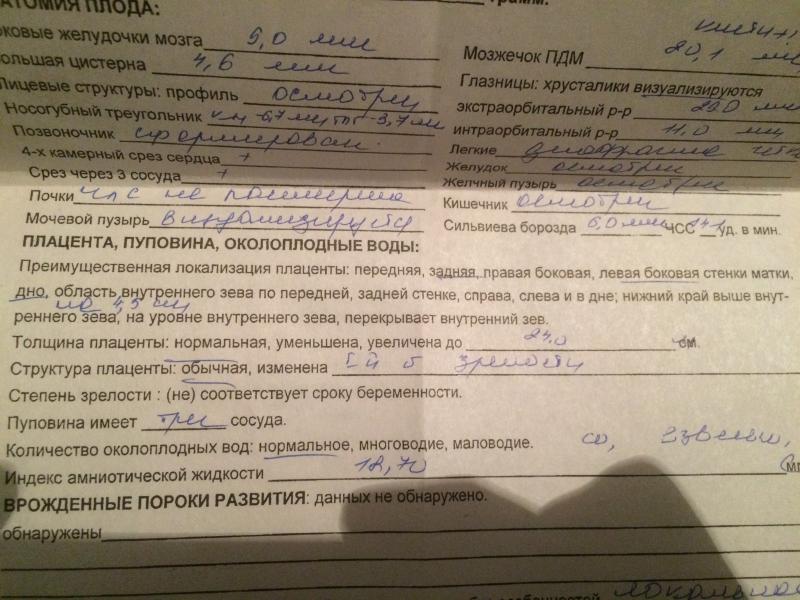 АТОМИЯ ПЛОДА:
оковые желудочки мозга 5,0 мм
ольшая цистерна 4,6 мм
Лицевые структуры: профиль осмотрен
Носогубный треугольник
Позвоночник сформирован
4-х камерный срез сердца +
Срез через 3 сосуда +
Почки ЧЛС не расширена
Мочевой пузырь визуализируется
Мозжечок ПДМ 20,1
Глазницы: хрусталики визуализируются
экстраорбитальный р-р
интраорбитальный р-р 11,0 мм
Легкие
Желудок осмотрен
Желчный пузырь осмотрен
Кишечник осмотрен
Сильвиева борозда 6,0 мм ЧСС 141 уд. в мин.
ПЛАЦЕНТА, ПУПОВИНА, ОКОЛОПЛОДНЫЕ ВОДЫ:
Преимущественная локализация плаценты: передняя, задняя, правая боковая, левая боковая стенки матки,
дно, область внутреннего зева по передней, задней стенке, справа, слева и в дне; нижний край выше внут-
реннего зева, на уровне внутреннего зева, перекрывает внутренний зев.
Толщина плаценты: нормальная, уменьшена, увеличена до 24,0 см.
Структура плаценты: обычная, изменена зрелости
Степень зрелости : (не) соответствует сроку беременности.
Пуповина имеет три сосуда.
Количество околоплодных вод: нормальное, многоводие, маловодие. со взвесью,
Индекс амниотической жидкости 12,70
ВРОЖДЕННЫЕ ПОРОКИ РАЗВИТИЯ: данных не обнаружено.
обнаружены